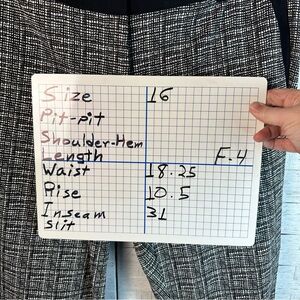 Size 16
Pit-pit
Shoulder-Hem
Length F-4
Waist 18.25
Rise 10.5
Inseam 31
Slit